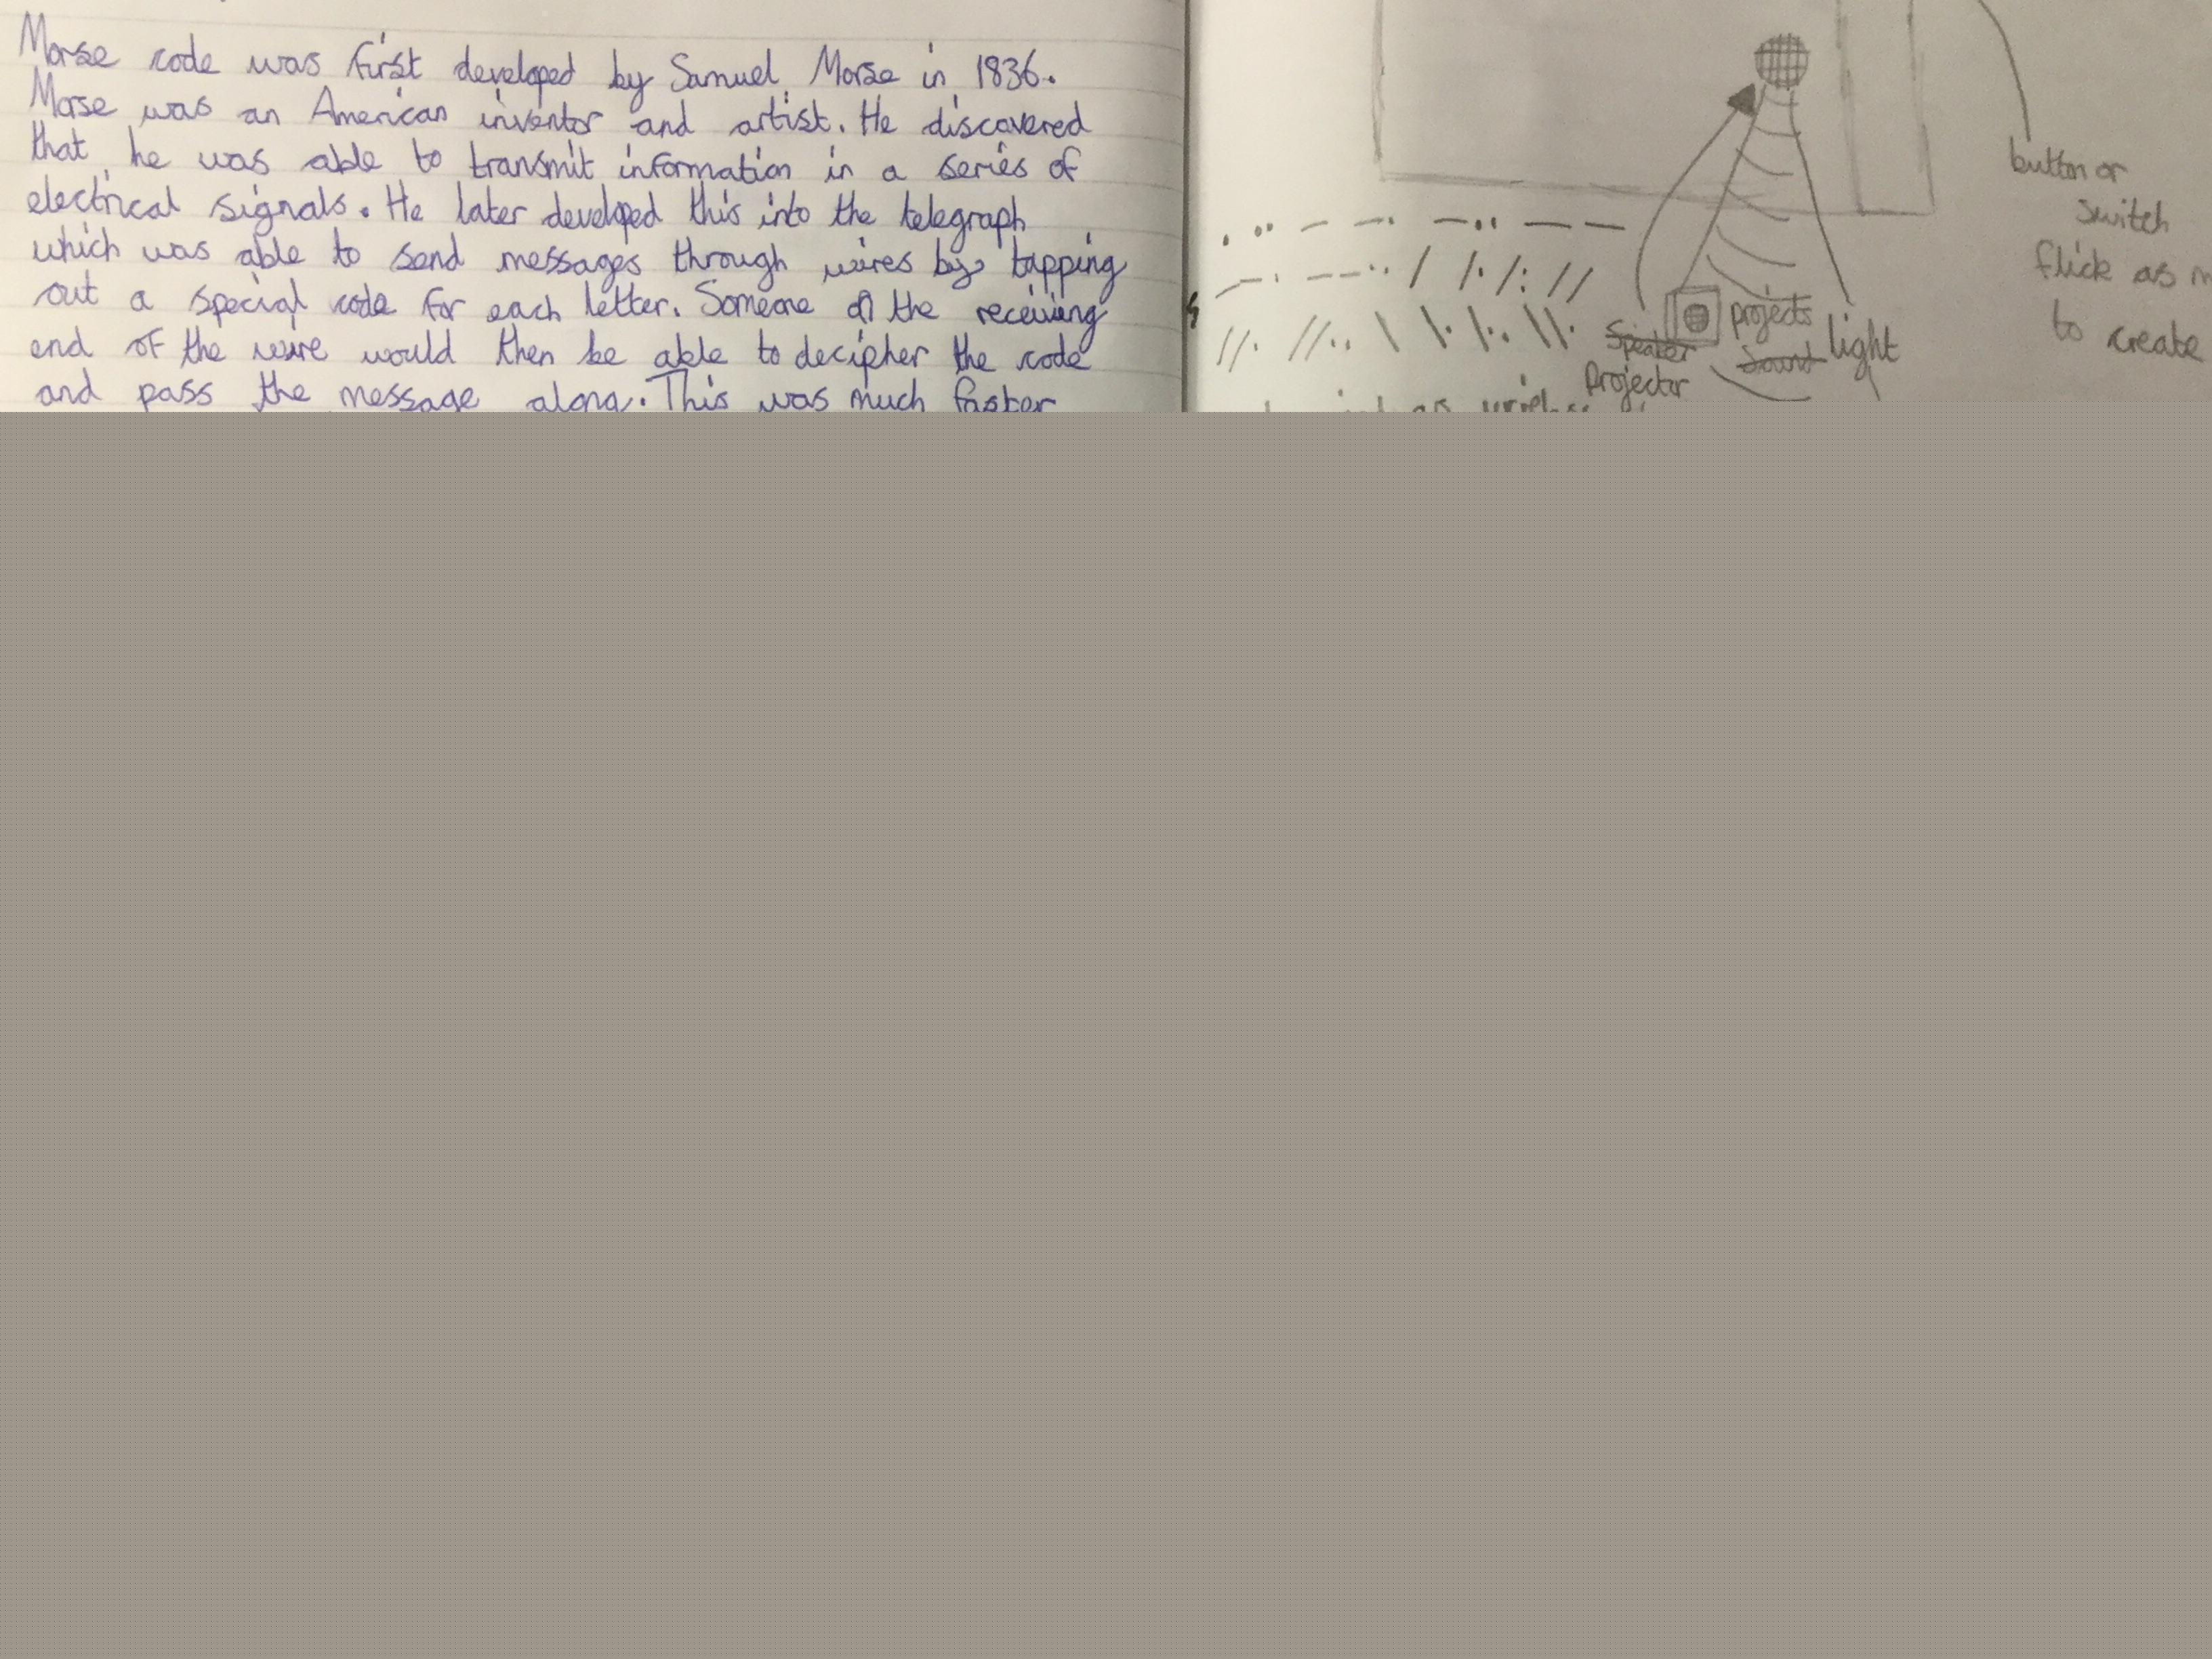 Morse code was first developed by Samuel Morse in 1836.
Morse was an American inventor and artist. He discovered
that he was able to transmit information in a series of
electrical signals. He later developed this into the telegraph
which was able to send messages through wires by tapping
out a special code for each letter. Someone on the receiving
end of the wire would then be able to decipher the code
and pass the message along. This was much faster
button or
switch
flick as
to create
projects
Speaker
Sound light
Projector
as